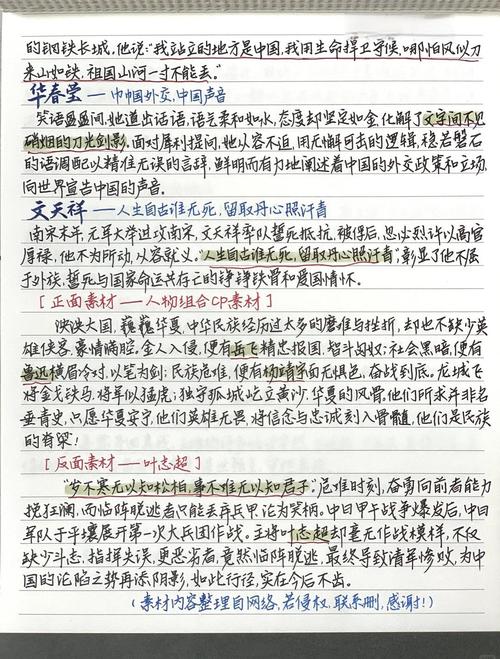 的钢铁长城。他说:“我站立的地方是中国,我用生命捍卫守候,哪怕风似刀
来山如铁,祖国山河一寸不能丢。”
华春莹——巾帼外交,中国声音
笑语盈盈间,她道出话语,语气柔和如水,态度却坚定如金化解了文字间不见
硝烟的刀光剑影。面对犀利提问,她从容不迫,用无懈可击的逻辑,稳若磐石
的语调配以精准无误的言辞,鲜明而有力地阐述着中国的外交政策和立场,
向世界宣告中国的声音。
文天祥——人生自古谁无死,留取丹心照汗青
南宋末年,元军大举进攻南宋,文天祥率队誓死抵抗,被俘后,忽必烈许以高官
厚禄,他不为所动,从容就义。“人生自古谁无死,留取丹心照汗青”,彰显了他不屈
于外族,誓死与国家命运共存亡的铮铮铁骨和爱国情怀。
[正面素材——人物组合CP素材]
泱泱大国,巍巍华夏,中华民族经历过太多的磨难与挫折,却也不缺少英
雄侠客,豪情满腔。金人入侵,便有岳飞精忠报国,智斗匈奴;社会黑暗,便有
鲁迅横眉冷对,以笔为剑;民族危难,便有杨靖宇面无惧色,奋战到底。龙城飞
将金戈铁马,将军似猛虎;独守孤城屹立黄沙,华夏的风骨,他们所求并非名
垂青史,只愿华夏安宁,他们英雄无畏,将信念与忠诚刻入骨髓,他们是民族
的脊梁!
[反面素材——叶志超]
“岁不寒无以知松柏,事不难无以知君子”,危难时刻,奋勇向前者能力
挽狂澜,而临阵脱逃者只能丢兵甲沦为笑柄。中日甲午战争爆发后,中日
军队于平壤展开第一次大兵团作战。主将叶志超却毫无作战模样,不仅
缺少斗志,指挥失误,更恶劣者,竟然临阵脱逃,最终导致清军惨败,为中
国的沦陷之势再添阴影,如此行径,实在令后不齿。
(素材内容整理自网络,若侵权,联系删,感谢!)